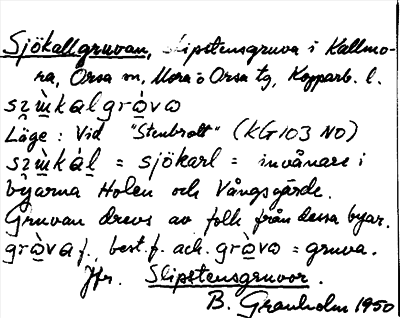 Sjökallgruvan, Slipstensgruva i Kallmo-
ra, Orsa sn, Mora o Orsa tg, Kopparb. l.
sz̩ùkalgràvo
Läge: Vid "Stenbrott" (KG103 NO)
sz̩ùkál = sjökarl = invånare i
byarna Holen och Vångsgärde.
Gruvan drevs av folk från dessa byar.
gràva f., best. f. ack. gràvo = gruva.
Jfr. Slipstensgruvor.
B. Granholm 1950